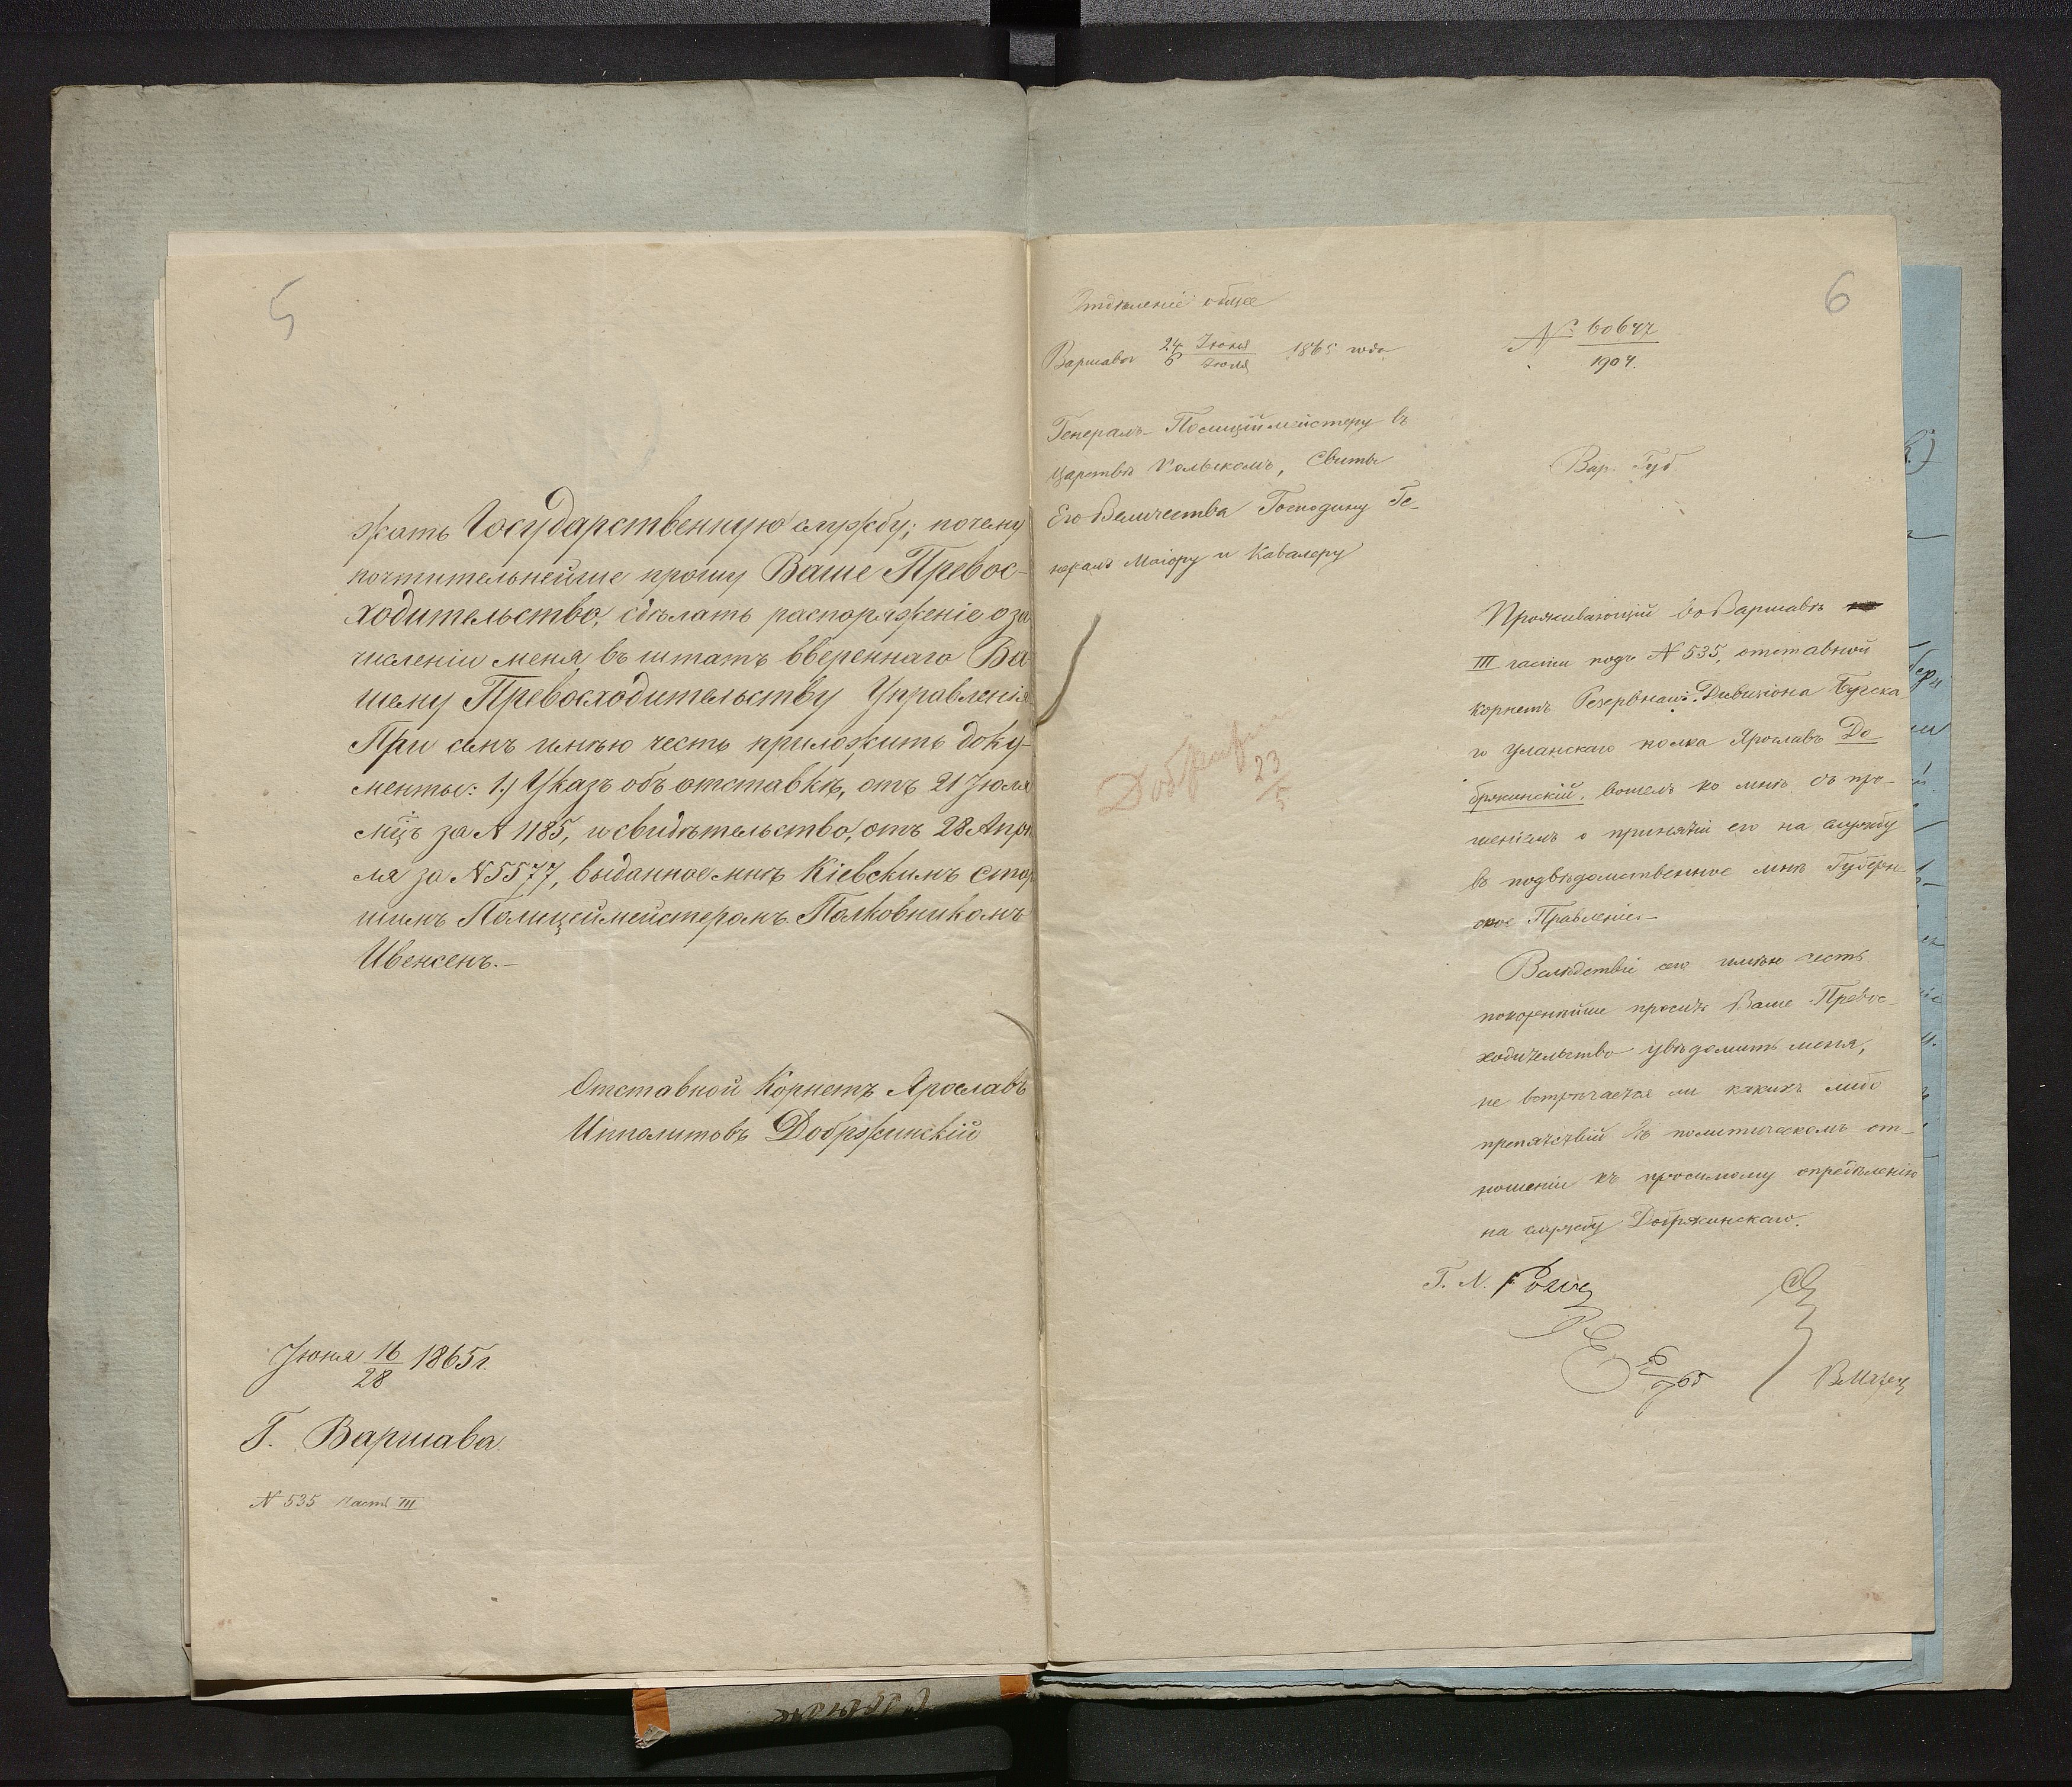 5
жать Государственную службу; почему
почтительнейше прошу Ваше Превос-
ходительство, сдѣлать распоряженіе о за
численіи меня въ штатъ ввереннаго Ва
шему Превосходительству Управленія
При семъ имѣю честь приложить доку-
менты: 1) Указъ объ отставкѣ, отъ 21 Іюля
за N 1185, и свидѣтельство, отъ 28 Апрѣ
ля за N 5577, выданное мнѣ Кіевскимъ Стар
шимъ Полицеймейстеромъ Полковникомъ
Ивенсенъ.-
Отставной Корнетъ Ярославъ
Ипполитовъ Добржинскій
Іюня 16/28 1865 г.
Г. Варшава
N 535 Часть III
6
Отдѣленіе общее
Варшава 24 Іюня / 6 Іюля 1865 года
№ 60647
1904.
Генералъ-Полицiймейстеру въ
Царствѣ Польскомъ, Свиты
Его Величества Господину Ге-
нералъ Маіору и Кавалеру
Вар. Губ
Проживающій въ Варшавѣ
III части подъ N 535, отставной
корнетъ Резервнаго Дивизіона Бугска
го Уланскаго полка Ярославъ До-
бржинскій, вошелъ ко мнѣ съ про-
шеніемъ о принятіи его на службу
въ подвѣдомственное мнѣ Губерн-
ское Правленіе.-
Вслѣдствіе сего имѣю честь
покорнѣйше просить Ваше Превос-
ходительство увѣдомить меня,
не встрѣчается ли какихъ либо
препятствій въ политическомъ от-
ношеніи къ просимому опредѣленію
на службу Добржинскаго.
23
5
Г. N.